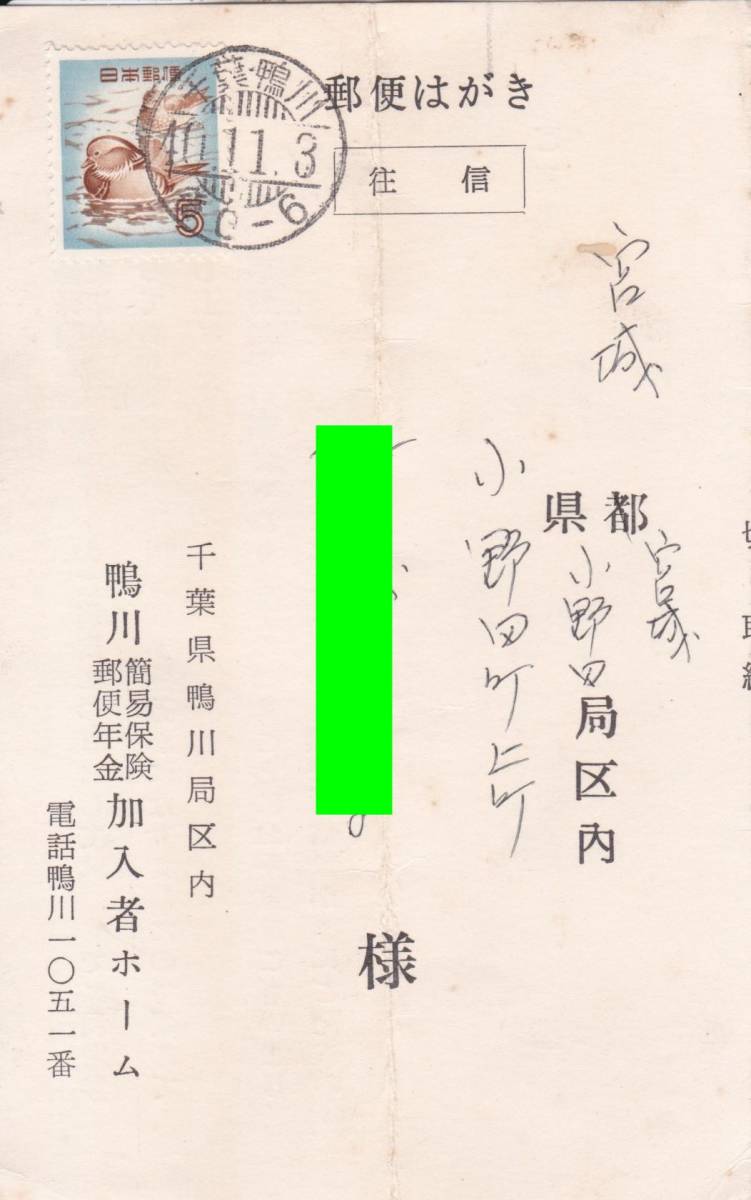 日本郵便
5
千葉・鴨川
40.11.3
0-6
郵便はがき
往信
宮城
都
県
宮城
小野田
局区内
小野田町上町
様
千葉県鴨川局区内
鴨川簡易保険郵便年金加入者ホーム
電話鴨川一〇五一番